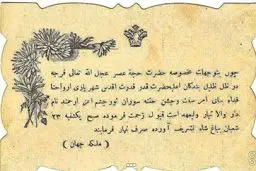 چون بتوجهات مخصوصه حضرت حجة عصر عجل الله تعالی فرجه
در ظل ظلیل بندگان اعلیحضرت قدر قدرت اقدس شهریاری ارواحنا
فداه بنای امر سنت و جشن ختنه سوران نور چشم
والا تبار ولیعهد است قبول زحمت فرموده صبح یکشنبه ۲۳
شعبان بباغ شاه تشریف آورده صرف نهار فرمایند
( ملکه جهان )